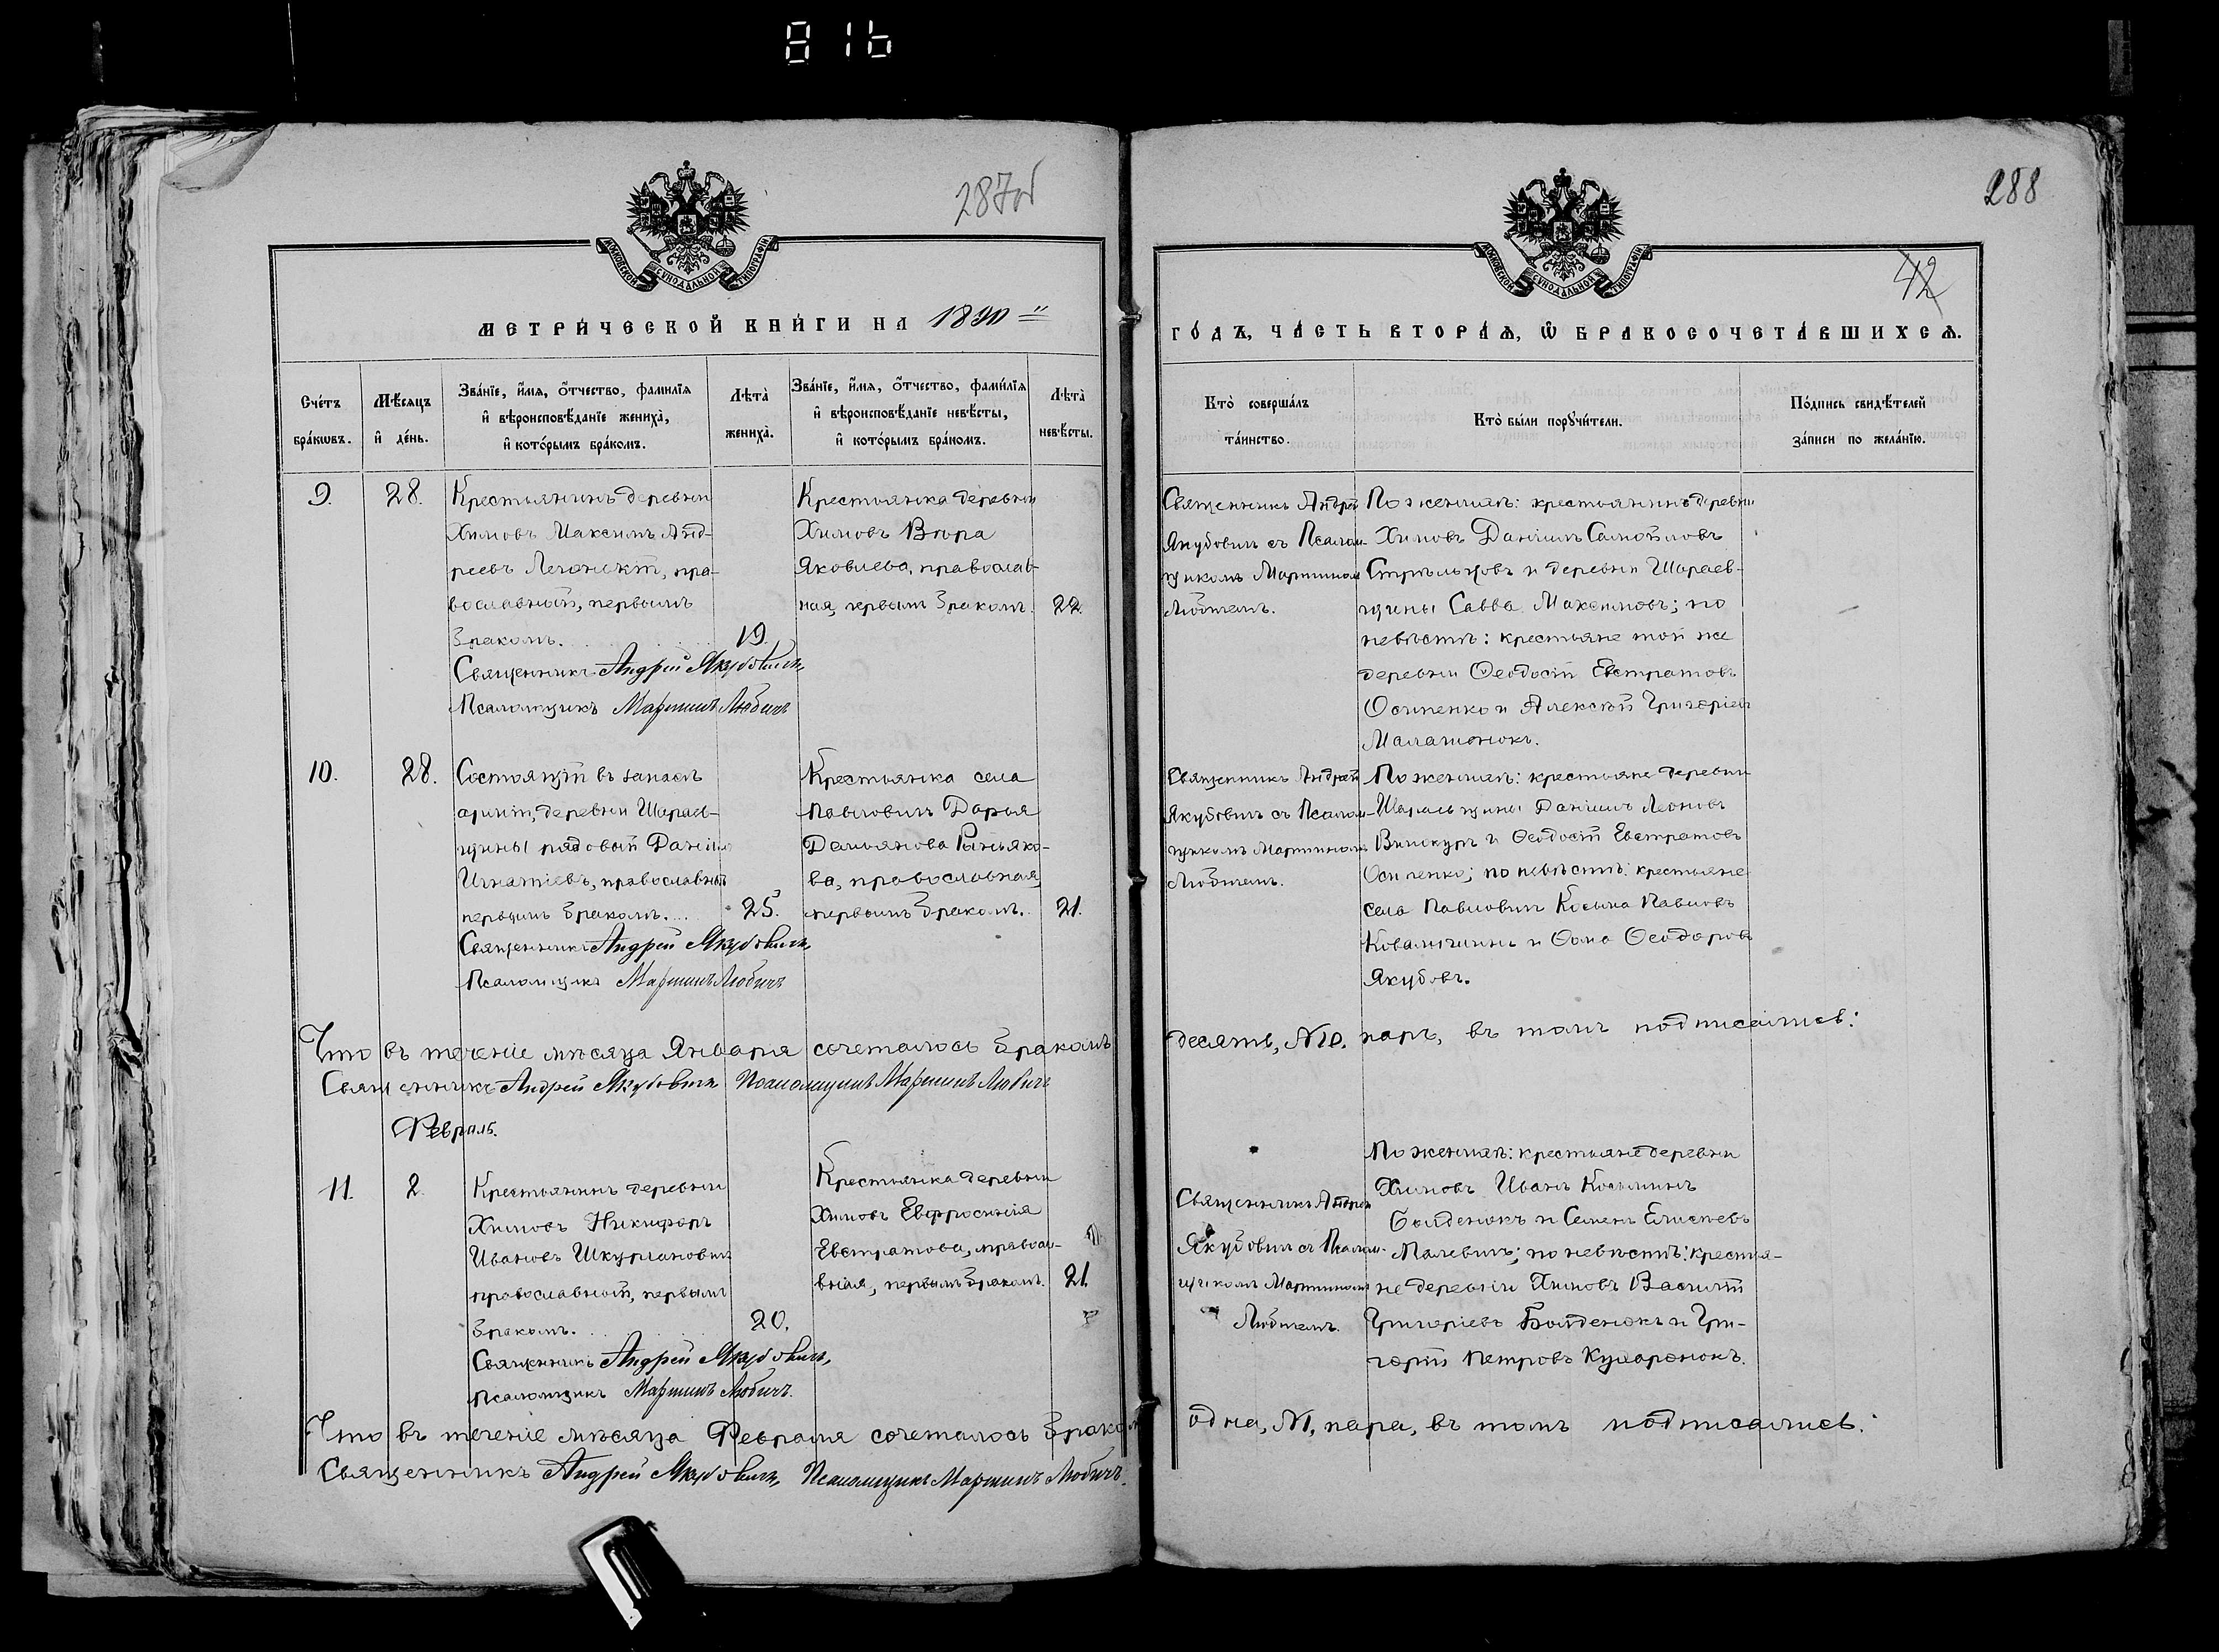 816
287об
288
42
МОСКОВСКОЙ СѴНОДАЛЬНОЙ ТИПОГРАФІИ
МОСКОВСКОЙ СѴНОДАЛЬНОЙ ТИПОГРАФІИ
МЕТРИ́ЧЕСКОЙ КНИ́ГИ НА 1890
ГО́ДЪ, ЧА́СТЬ ВТОРА́Ѧ, Ѽ БРАКОСОЧЕТА́ВШИХСѦ.
Сче́тъ
бра́кѡвъ.
Мѣ́сяцъ
и҆ де́нь.
Зва́нїе, и҆́мѧ, о҆́тчество, фами́лїѧ
и҆ вѣроисповѣ́данїе жениха̀,
и҆ кото́рымъ бра́комъ.
Лѣта̀
жениха̀.
Зва́нїе, и҆́мѧ, о҆́тчество, фами́лїѧ
и҆ вѣроисповѣ́данїе невѣ́сты,
и҆ кото́рымъ бра́комъ.
Лѣта̀
невѣ́сты.
Кто̀ соверша́лъ
та́инство.
Кто̀ бы́ли порꙋчи́тели.
По́дпись свидѣ́телей
за́писи по жела́нїю.
9.
28.
Крестьянинъ деревни
Химовъ Максимъ Анд-
реевъ, пра-
вославный, первымъ
бракомъ.
19.
Священникъ Андрей Якубовичъ,
Псаломщикъ Мартинъ Любичъ
Крестьянка деревни
Химовъ Вѣра
Яковлева, православ-
ная, первымъ бракомъ.
22.
Священникъ Андрей
Якубовичъ съ Псалом-
щикомъ Мартиномъ
Любичемъ.
По женихѣ: крестьянинъ деревни
Химовъ Даніилъ Самойловъ
Стрѣльцовъ и деревни Шараев-
щины Савва Максимовъ; по
невѣстѣ: крестьяне той же
деревни Ѳеодосій Евстратовъ
Осипенко и Алексѣй Григоріевъ
Малашонокъ.
10.
28.
Состоящій въ запасѣ
арміи, деревни Шараев-
щины рядовой Даніилъ
Игнатіевъ, православный
первымъ бракомъ.
25.
Священникъ Андрей Якубовичъ,
Псаломщикъ Мартинъ Любичъ
Крестьянка села
Павловичъ Дарья
Демьянова
ва, православная,
первымъ бракомъ.
21.
Священникъ Андрей
Якубовичъ съ Псалом-
щикомъ Мартиномъ
Любичемъ.
По женихѣ: крестьяне деревни
Шараевщины Даніилъ Леоновъ
Винокуръ и Ѳеодосій Евстратовъ
Осипенко; по невѣстѣ: крестьяне
села Павловичъ Косьма Павловъ
и Ѳома Ѳеодоровъ
Якубовъ.
Что въ теченіе мѣсяца Января сочеталось бракомъ
десять, №10. паръ, въ томъ подписались:
Священникъ Андрей Якубовичъ Псаломщикъ Мартинъ Любичъ
Февраль.
11.
2.
Крестьянинъ деревни
Химовъ Никифоръ
Ивановъ Шкурмановичъ
православный, первымъ
бракомъ.
20.
Священникъ Андрей Якубовичъ,
Псаломщикъ Мартинъ Любичъ.
Крестьянка деревни
Химовъ Евфросинія
Евстратова, правосла-
вная, первымъ бракомъ.
21.
Священникъ Андрей
Якубовичъ съ Псалом-
щикомъ Мартиномъ
Любичемъ.
По женихѣ: крестьяне деревни
Химовъ Иванъ Косьминъ
Болденокъ и Семенъ Елисѣевъ
Малевичъ; по невѣстѣ: крестья-
не деревни Химовъ Василій
Григоріевъ Болденокъ и Гри-
горій Петровъ
Что въ теченіе мѣсяца Февраля сочеталось бракомъ
одна, №1, пара, въ томъ подписались:
Священникъ Андрей Якубовичъ, Псаломщикъ Мартинъ Любичъ.